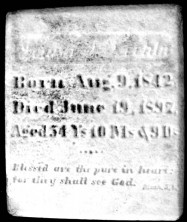 Born Aug. 9, 1842
Died June 19, 1897
Aged 54 Ys 10 Ms & 9 Ds.
Blessed are the pure in heart:
for they shall see God.